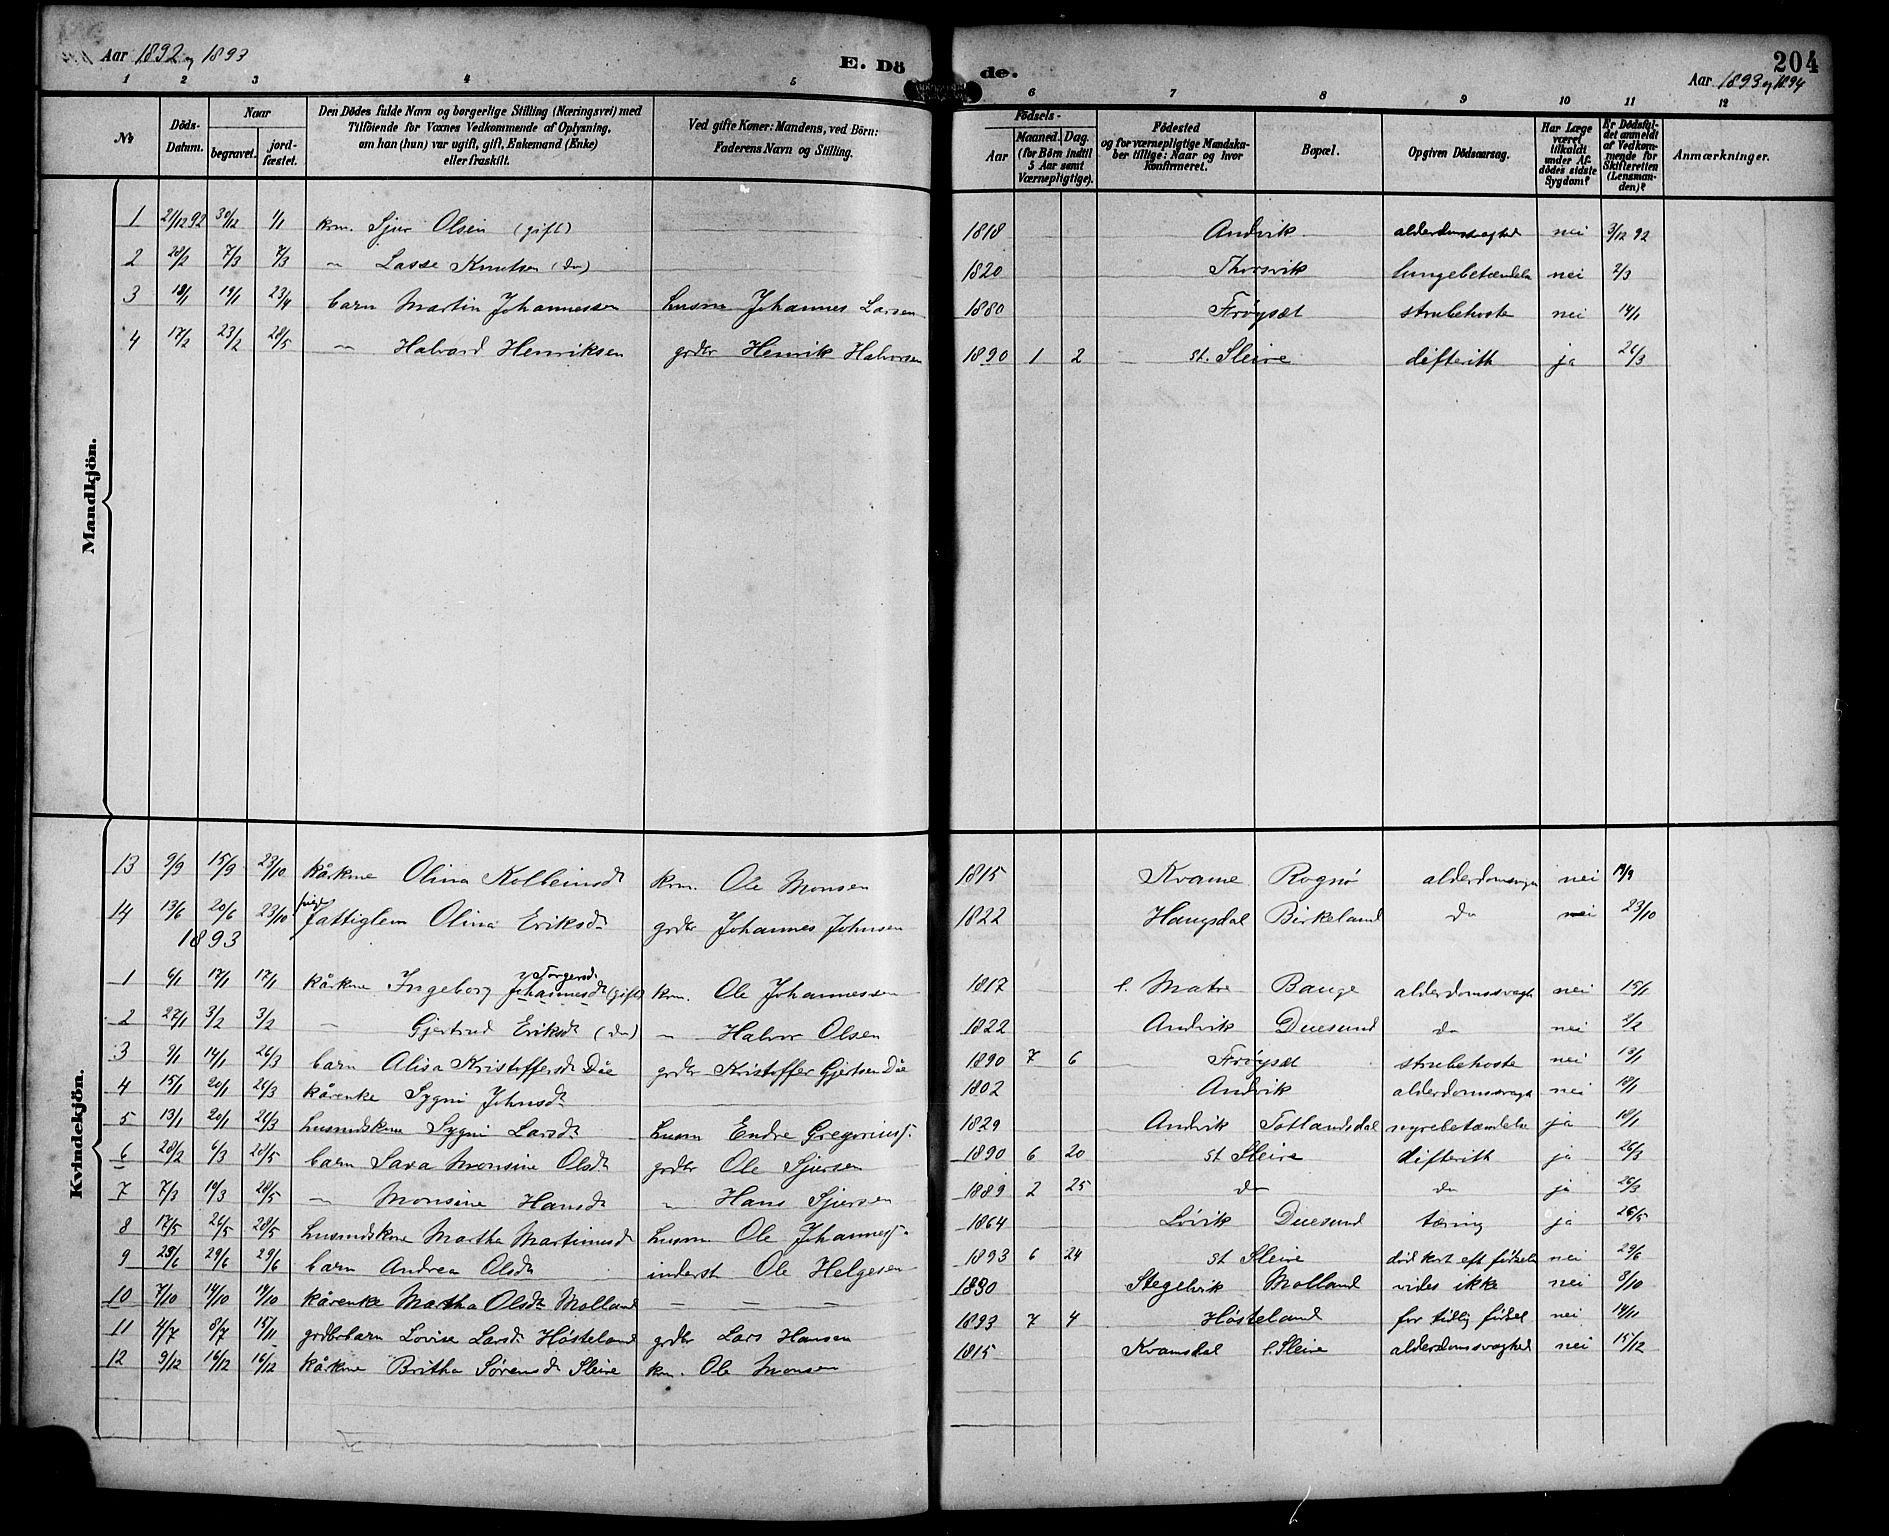 Aar 1892 og 1893
E. Dö de.
204
Aar 1893 og 1894
1 2 3 4 5 6 7 8 9 10 11 12
No
Döds-Datum.
Naar begravet. jordfæstet.
Den Dödes fulde Navn og borgerlige Stilling (Næringsvei) med
Tilföiende for Voxnes Vedkommende af Oplysning,
om han (hun) var ugift, gift, Enkemand (Enke)
eller fraskilt.
Ved gifte Koner: Mandens, ved Börn:
Faderens Navn og Stilling.
Födsels-
Aar
Maaned. Dag.
(for Börn indtil
5 Aar samt
Værnepligtige).
Födested
og for værnepligtige Mandska-
ber tillige: Naar og hvor
konfirmeret.
Bopæl.
Opgiven Dödsaarsag.
Har Læge
været
tilkaldt
under Af-
dödes sidste
Sygdom?
Er Dödsfal-
det anmeldt
af Vedkom-
mende for
Skifteretten
(Lensman-
den)?
Anmærkninger.
Mandkjön.
1 21/12 92 30/12 1/1 krm. Sjur Olsen (gift) 1818 Andvik nei 3/12 92
2 20/2 7/3 7/3 " Lasse Knutsen (do) 1820 Thorsvik lungebetændelse nei 2/3
3 18/1 19/1 23/4 barn Martin Johannessen husm Johannes Larsen 1880 Frøyset strubehoste nei 14/1
4 17/2 23/2 28/5 " Halvard Henriksen grdbr Henrik Halvorsen 1890 1 2 st. Sleire difterith ja 26/3
Kvindekjön.
13 9/9 15/9 23/10 kårkone Olina Kolbeinsdt krm. Ole Monsen 1815 Kvame Rognø alderdomssvagh nei 14/9
14 13/6 20/6 23/10 fattiglem Olina Eriksdt grdbr Johannes Johnsen 1822 Haugsdal Birkeland do nei 23/10
1893
1 6/1 17/1 17/1 kårkne Ingeborg Johannesdt Torgersdt (gift) krm. Ole Johannessen 1817 l. Matre Bauge alderdomssvagh nei 15/1
2 27/1 3/2 3/2 " Gjertrud Eriksdt (do) " Halvor Olsen 1822 Andvik Duesund do nei 2/2
3 9/1 14/1 26/3 barn Alisa Kristoffersdt Dåe grdbr Kristoffer Gjertsen Dåe 1890 7 6 Frøyset strubehoste nei 13/1
4 15/1 20/1 26/3 kårenke Sygni Johnsdt 1802 Andvik alderdomssvagh nei 18/1
5 13/1 20/1 26/3 husmdskone Sygni Larsdt husm Endre Gregoriuss. 1829 Andvik Totlandsdal nyrebetændelse ja 18/1
6 28/2 6/3 28/5 barn Sara Monsine Olsdt grdbr Ole Sjursen 1890 6 20 st Sleire difterith ja 26/3
7 7/3 19/3 28/5 " Monsine Hansdt " Hans Sjursen 1889 2 25 do do ja 26/3
8 17/5 26/5 28/5 husmdskone Martha Martinusdt husm Ole Johanness. 1864 Løvik Duesund tæring ja 26/5
9 25/6 29/6 29/6 barn Andrea Olsdt inderst Ole Helgesen 1893 6 24 st Sleire død kort eft fødselen nei 29/6
10 7/10 14/10 14/10 kårenke Martha Olsdt Molland — — — 1830 Stegelvik Molland vides ikke nei 8/10
11 4/7 8/7 15/11 grdbrbarn Lovise Larsdt Høsteland grdbr Lars Hansen 1893 7 4 Høsteland for tidlig fødsel nei 14/11
12 9/12 16/12 16/12 kårkone Britha Sørensdt Sleire krm. Ole Monsen 1815 Kvamsdal l. Sleire alderdomssvaghed nei 15/12